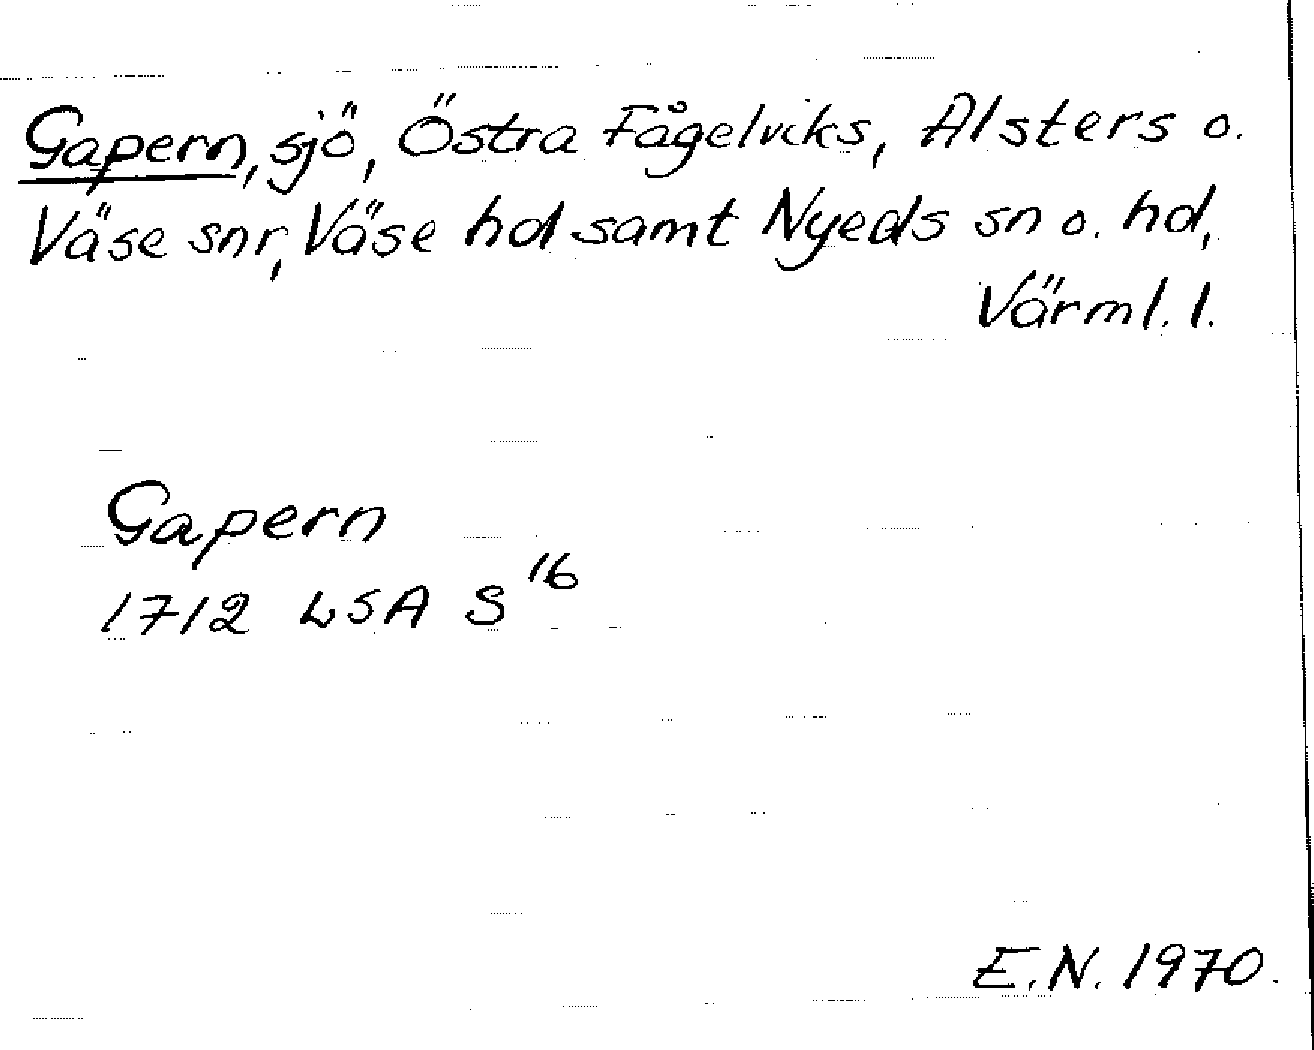 Gapern, sjö, Östra Fågelviks, Alsters o.
Väse snr, Väse hd samt Nyeds sn o. hd,
Värml. l.
Gapern
1712 LSA S 16
E.N. 1970.